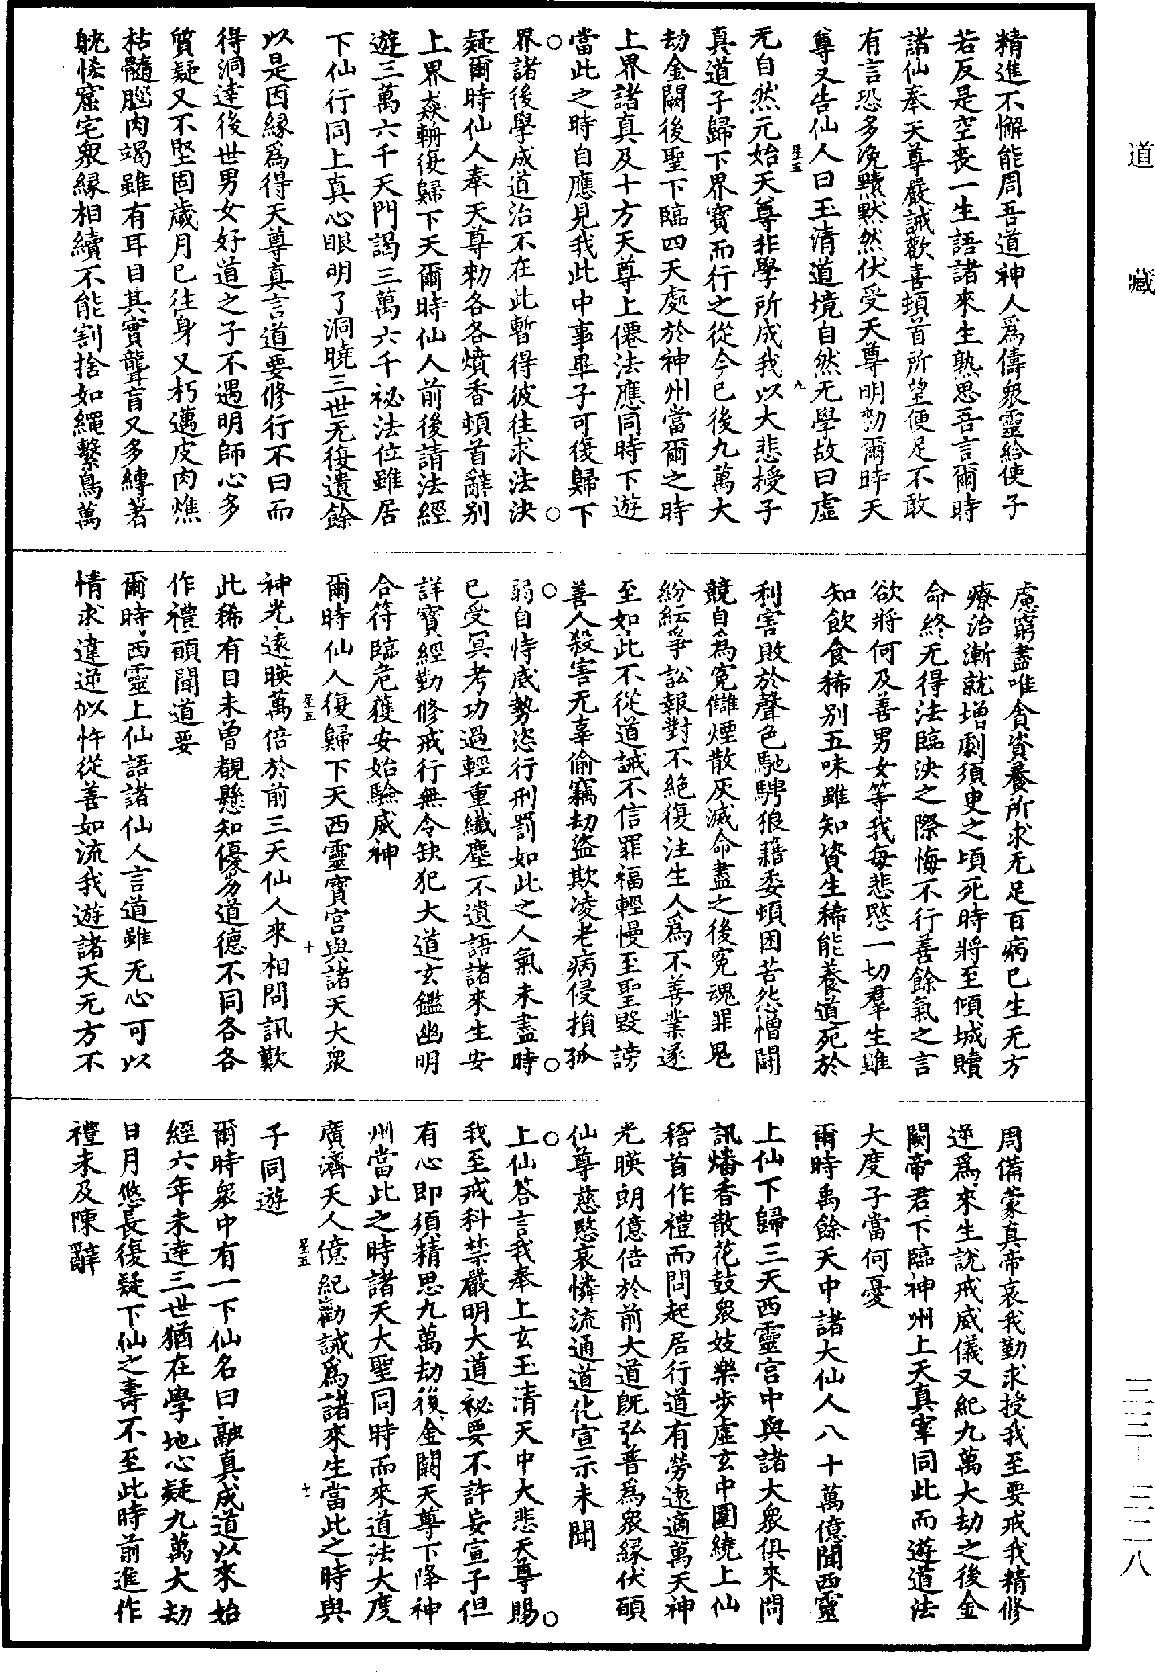 道藏
精進不懈能周吾道神人爲儔衆靈給使子
若反是空喪一生語諸來生熟思吾言爾時
諸仙奉天尊嚴誡歡喜頓首所望便足不敢
有言恐多浼黷默然伏受天尊明勑爾時天
尊又告仙人曰玉清道境自然无學故曰虛
星五
九
无自然元始天尊非學所成我以大悲授子
真道子歸下界寶而行之從今已後九萬大
劫金闕後聖下臨四天處於神州當爾之時
上界諸真及十方天尊上僊法應同時下遊
當此之時自應見我此中事畢子可復歸下
界諸後學成道治不在此暫得彼往求法決
疑爾時仙人奉天尊勑各各燌香頓首辭別
上界猋軿復歸下天爾時仙人前後請法經
遊三萬六千天門謁三萬六千祕法位雖居
下仙行同上真心眼明了洞曉三世无復遺餘
以是因緣爲得天尊真言道要修行不日而
得洞達後世男女好道之子不遇明師心多
質疑又不堅固歲月已往身又朽邁皮肉燋
枯髓腦肉竭雖有耳目其實聾盲又多縳著
躭恡窟宅衆緣相續不能割捨如繩繫鳥萬
慮窮盡唯貪資養所求无足百病已生无方
療治漸就增劇須臾之頃死時將至傾城贖
命終无得法臨泱之際悔不行善餘氣之言
欲將何及善男女等我每悲愍一切羣生雖
知飲食稀別五味雖知資生稀能養道死於
利害敗於聲色馳騁狼藉委頓困苦怨憎鬪
競自爲寃讎煙散灰滅命盡之後寃魂罪鬼
紛紜爭訟報對不絕復注生人爲不善業遂
至如此不從道誡不信罪福輕慢至聖毀謗
善人殺害无辜偷竊劫盜欺凌老病侵損孤
弱自恃威勢恣行刑罰如此之人氣未盡時
已受冥考功過輕重纖塵不遺語諸來生安
詳寶經勤修戒行無令缺犯大道玄鑑幽明
合符臨危獲安始驗威神
爾時仙人復歸下天西靈寶宮與諸天大衆
星五
十
神光遠暎萬倍於前三天仙人來相問訊歎
此稀有目未曾覩懸知優劣道德不同各各
作禮願聞道要
爾時西靈上仙語諸仙人言道雖无心可以
情求違逆似忤從善如流我遊諸天无方不
周備蒙真帝哀我勤求授我至要戒我精修
逆爲來生說戒威儀又紀九萬大劫之後金
闕帝君下臨神州上天真宰同此而遊道法
大度子當何憂
爾時禹餘天中諸大仙人八十萬億聞西靈
上仙下歸三天西靈宮中與諸大衆俱來問
訊燔香散花鼓衆妓樂步虛玄中圍繞上仙
稽首作禮而問起居行道有勞遠適萬天神
光暎朗億倍於前大道旣弘普爲衆緣伏願
仙尊慈愍哀憐流通道化宣示未聞
上仙荅言我奉上玄玉清天中大悲天尊賜
我至戒科禁嚴明大道祕要不許妄宣子但
有心即須精思九萬劫後金闕天尊下降神
州當此之時諸天大聖同時而來道法大度
廣濟天人億紀勸誡爲諸來生當此之時與
星五
十一
子同遊
爾時衆中有一下仙名曰融真成道以來始
經六年未達三世猶在學地心疑九萬大劫
日月悠長復疑下仙之壽不至此時前進作
禮未及陳辭
三三—三二八